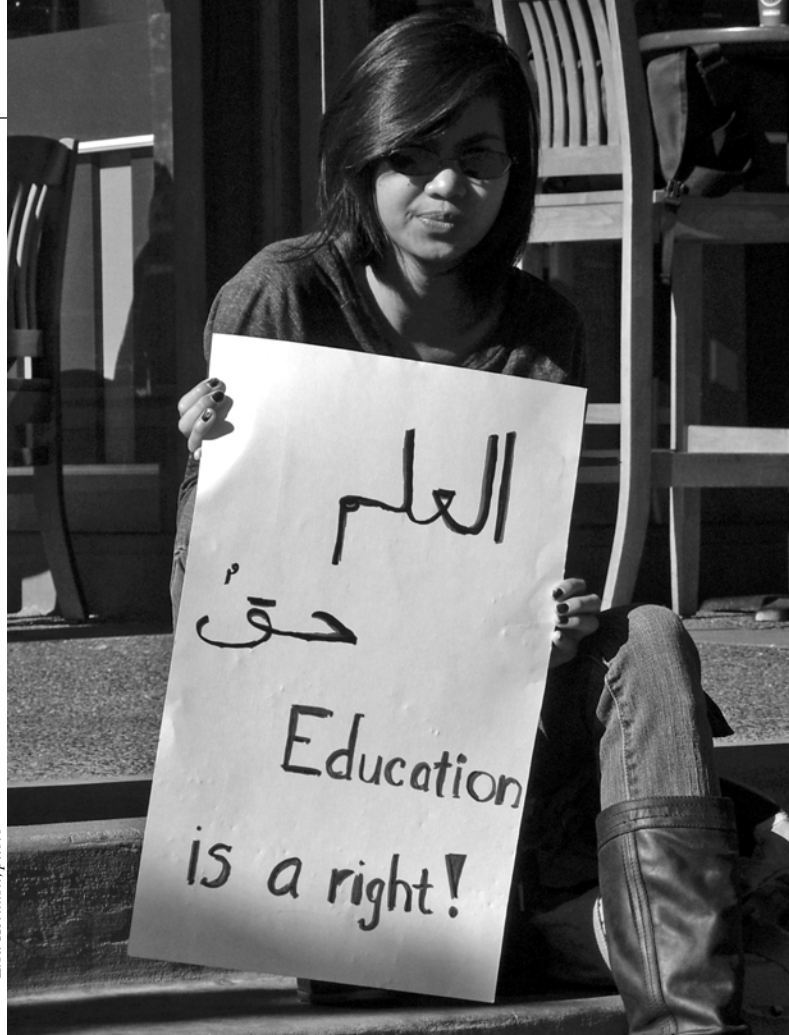 العلم
حقٌ
Education
is a right!